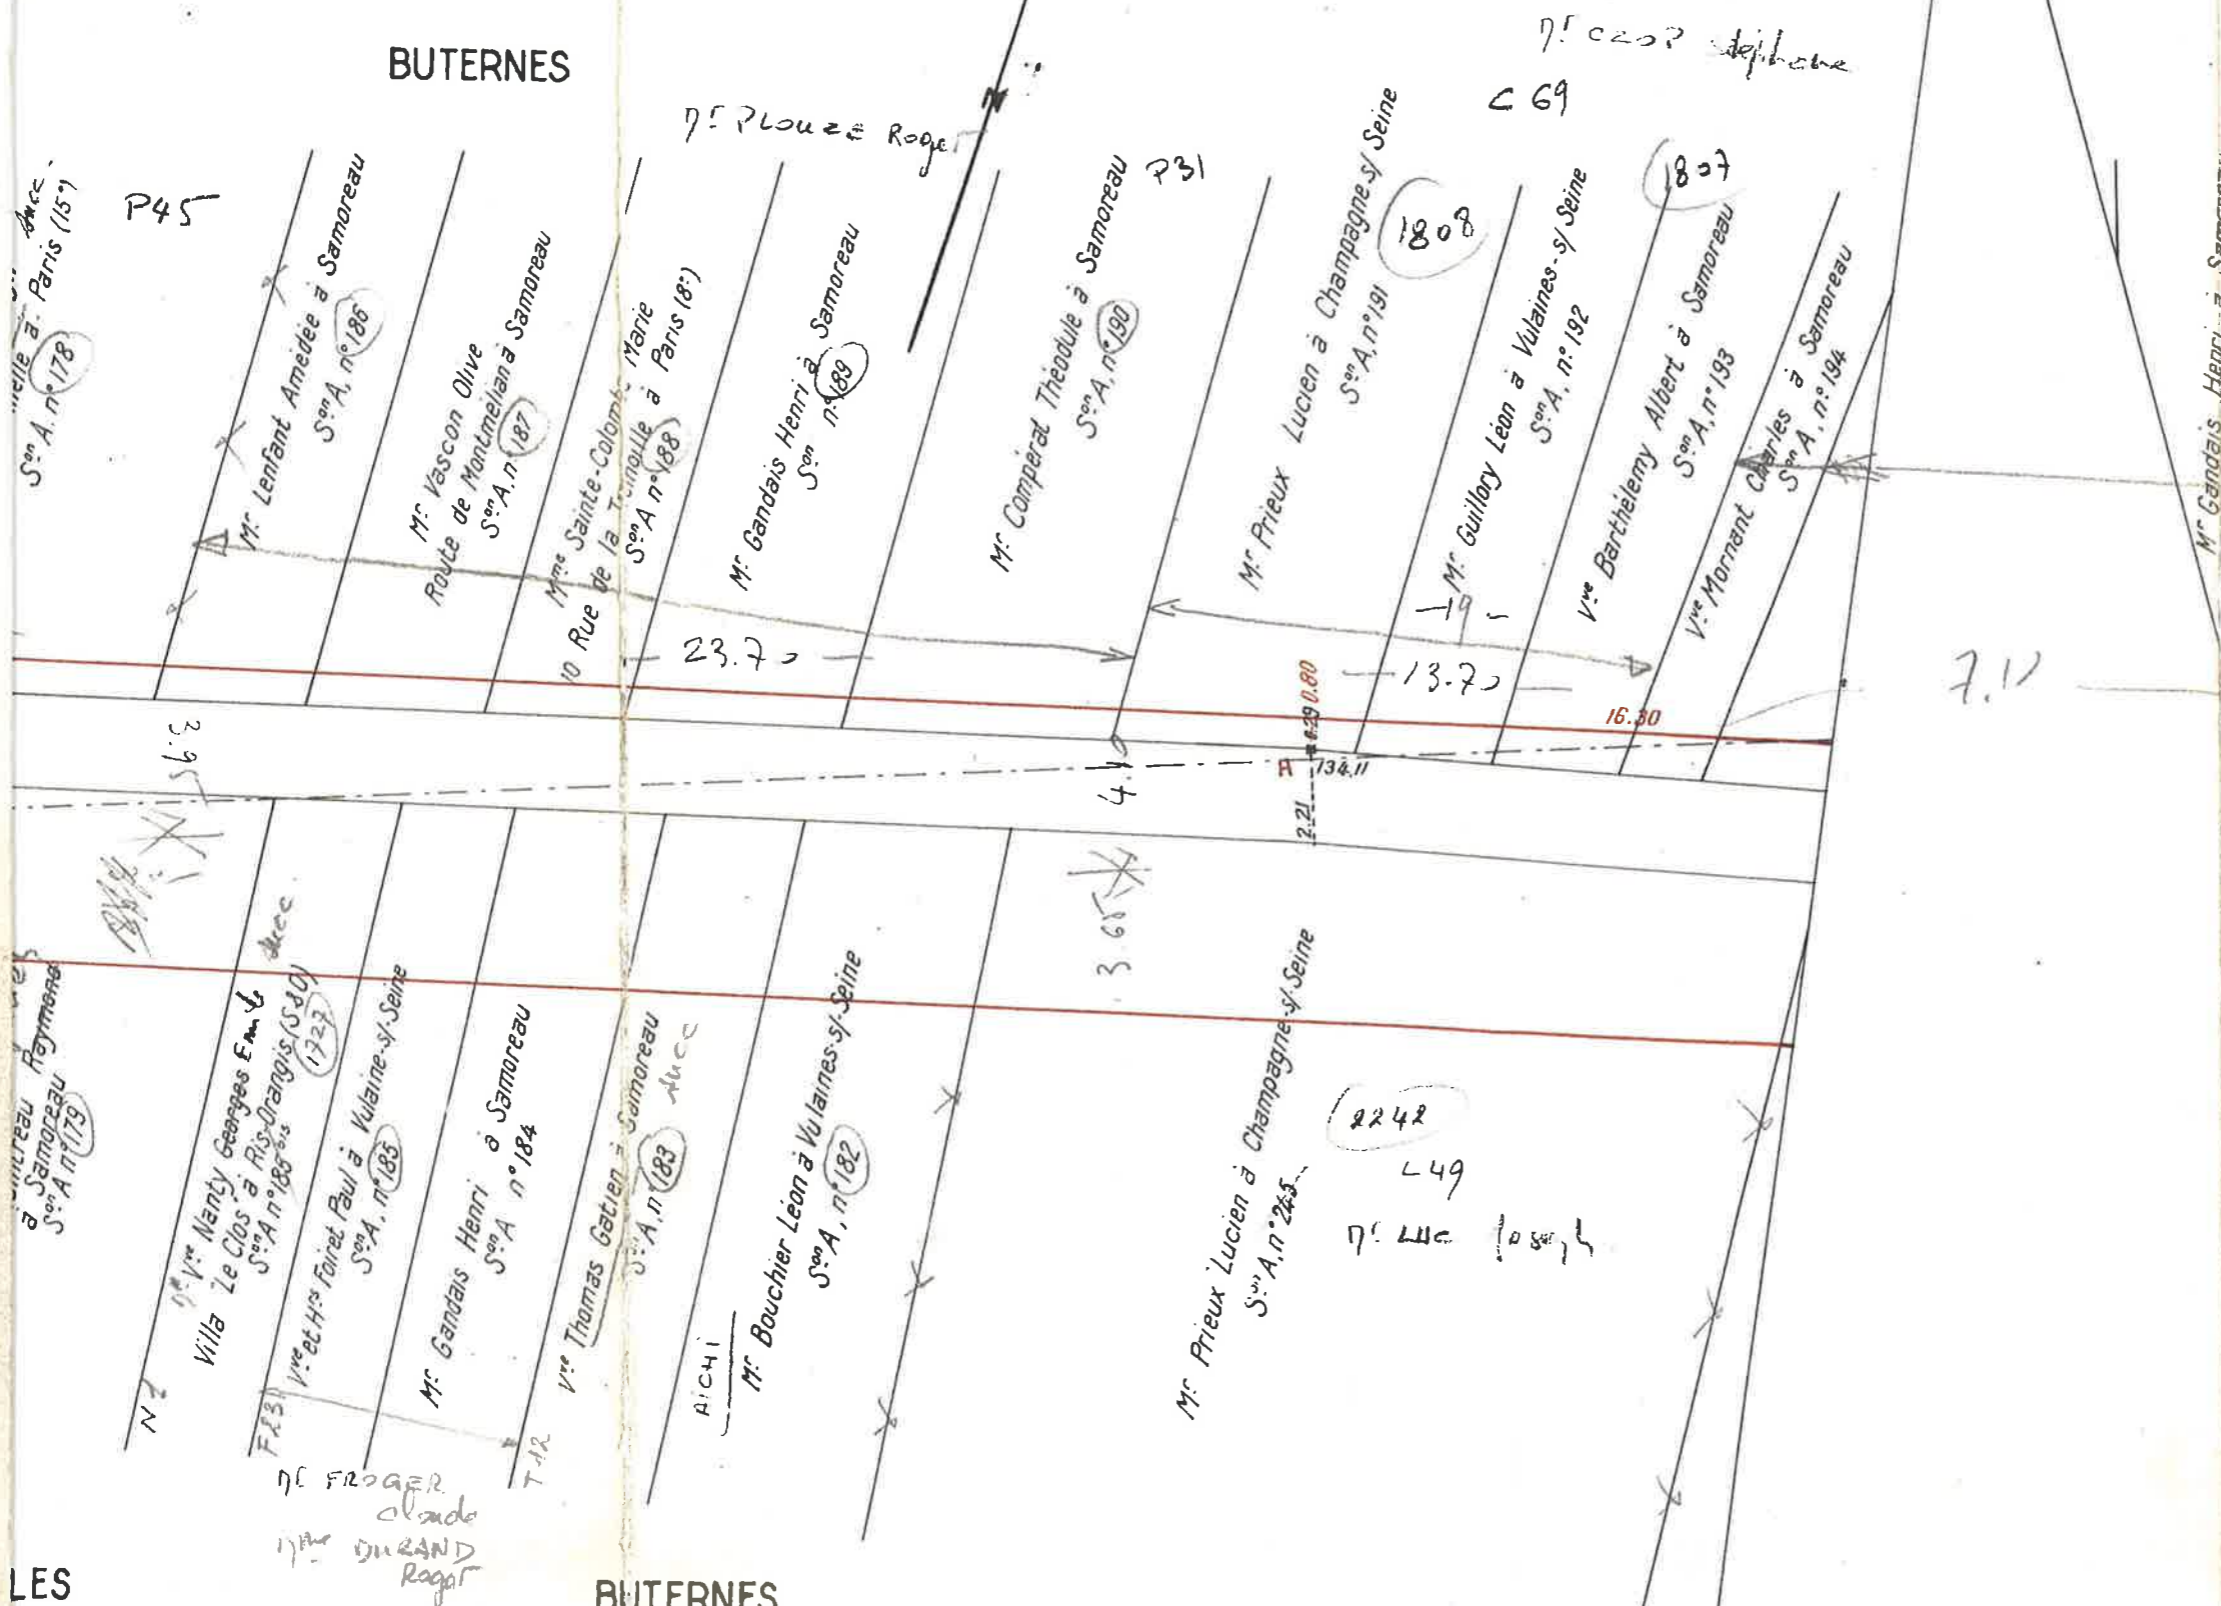 BUTERNES
Mr PLOUZE Roger
Mr CZOP
C 69
P45
P31
1808
1807
succ.
à Paris (15e)
Son A. n° 178
Mr Lenfant Amédée à Samoreau
Son A, n° 186
Mr Vascon Olive
Route de Montmélian à Samoreau
Son A, n° 187
Mme Sainte-Colombe Marie
10 Rue de la Trémoille à Paris (8e)
Son A n° 188
Mr Gandais Henri à Samoreau
Son n° 189
Mr Compérat Théodule à Samoreau
Son A, n° 190
Mr Prieux Lucien à Champagne s/ Seine
Son A, n° 191
Mr Guillory Léon à Vulaines-s/ Seine
Son A, n° 192
Vve Barthélemy Albert à Samoreau
Son A, n° 193
Vve Mornant Charles à Samoreau
Son A, n° 194
Mr Gandais Henri à Samoreau
23.70
19
13.70
0.80
0.29
16.30
7.10
3.95
4.10
A 134.11
2.21
3.65
Raymond
à Samoreau
Son A n° 179
Vve Nanty Georges Emile
succ
Villa "Le Clos" à Ris-Orangis (S&O)
Son A n° 185 bis
1727
Vve et Hrs Foiret Paul à Vulaine-s/-Seine
Son A, n° 185
Mr Gandais Henri à Samoreau
Son A n° 184
Vve Thomas Gatien à Samoreau
Son A, n° 183
succ
AICHI
Mr Bouchier Léon à Vulaines-s/-Seine
Son A, n° 182
Mr Prieux Lucien à Champagne-s/-Seine
Son A, n° 245
2242
L49
Mr LUC Joseph
N 1
F23
T 12
Mr FROGER
Claude
Mme DURAND
Roger
LES
BUTERNES